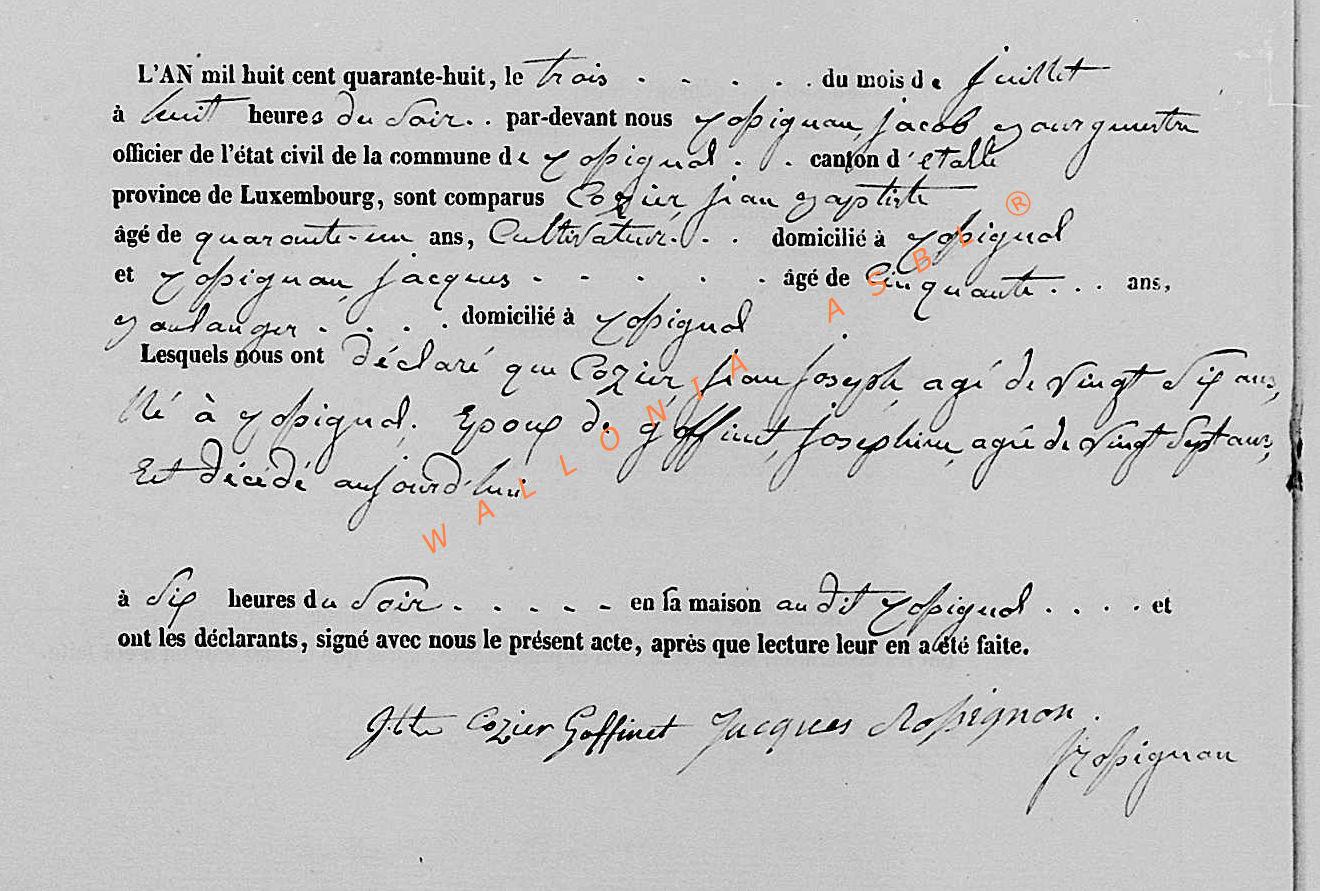 L'AN mil huit cent quarante-huit, le trois . . . . . du mois de Juillet
à huit heures du Soir . . par-devant nous Rossignon, Jacob, Bourgmestre
officier de l'état civil de la commune de Rossignol . . . canton d'etalle
province de Luxembourg, sont comparus Cozier, Jean Baptiste
âgé de quarante-un ans, Cultivateur . . . domicilié à Rossignol
et Rossignon, Jacques . . . . . âgé de Cinquante . . . ans,
Boulanger . . . . domicilié à Rossignol
Lesquels nous ont déclaré que Cozier, Jean Joseph, agé de vingt Six ans,
Né à Rossignol, Epoux de Goffinet, Josephine, agée de vingt Sept ans,
Est décédé aujourd'hui
à Six heures du Soir . . . . . en sa maison au dit Rossignol . . . . et
ont les déclarants, signé avec nous le présent acte, après que lecture leur en a été faite.
Jtte Cozier Goffinet Jacques Rossignon.
J Rossignon
WALLONIA ASBL ®